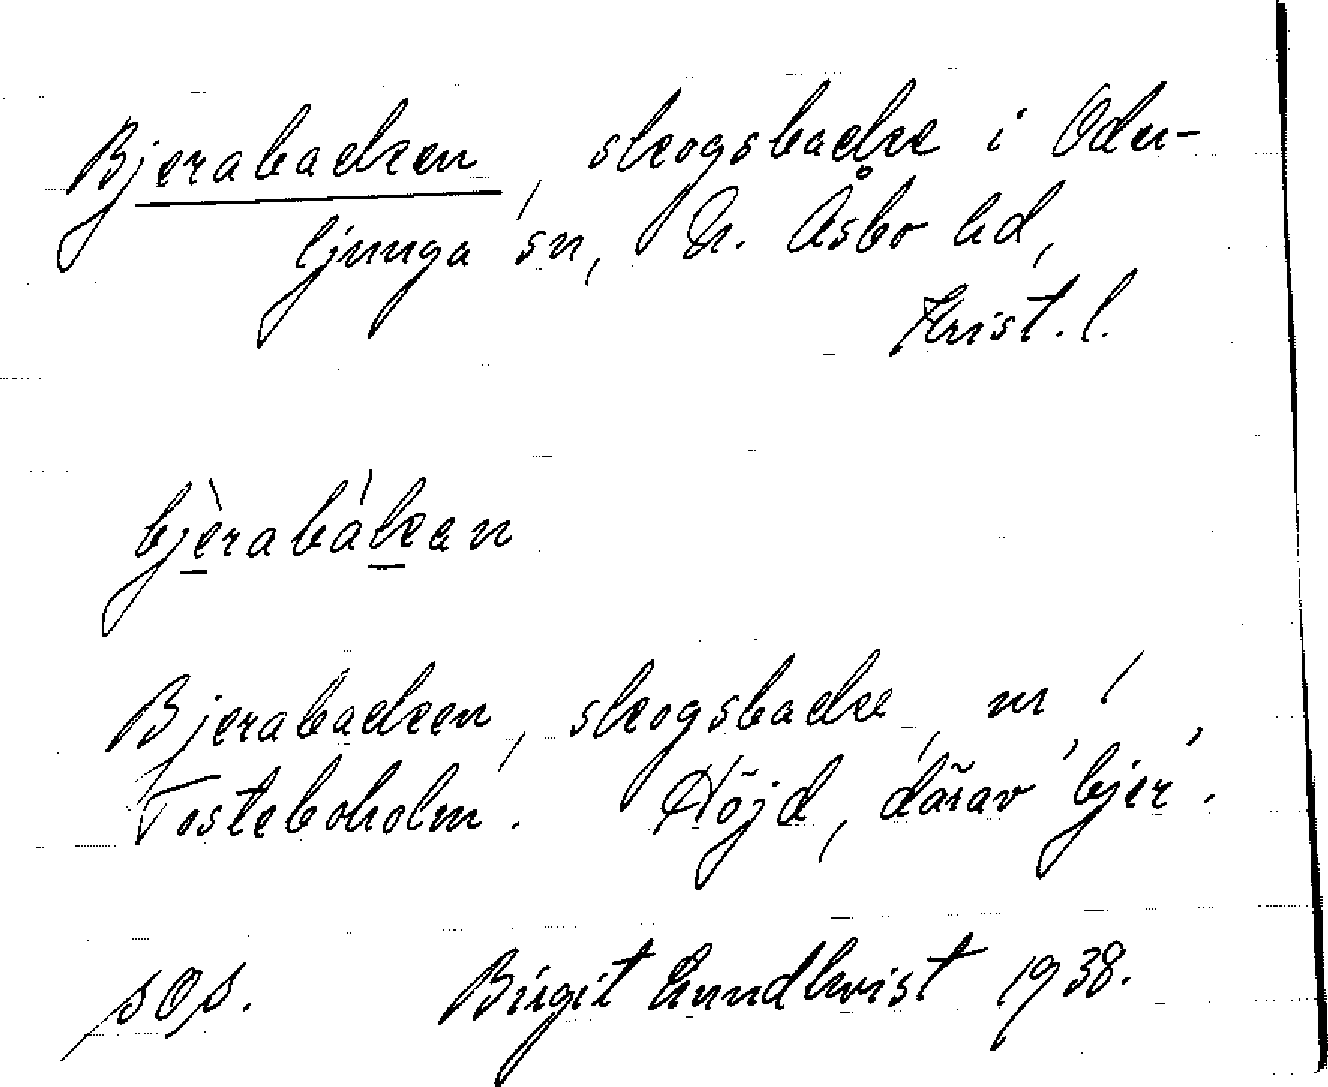 Bjerabacken, skogsbacke i Oder-
ljunga sn, N. Åsbo hd,
Krist. l.
bjèrabákan
Bjerabacken, skogsbacke, m !
Tosteboholm. Höjd, därav 'bjer'.
sOs. Birgit Lundkvist 1938.